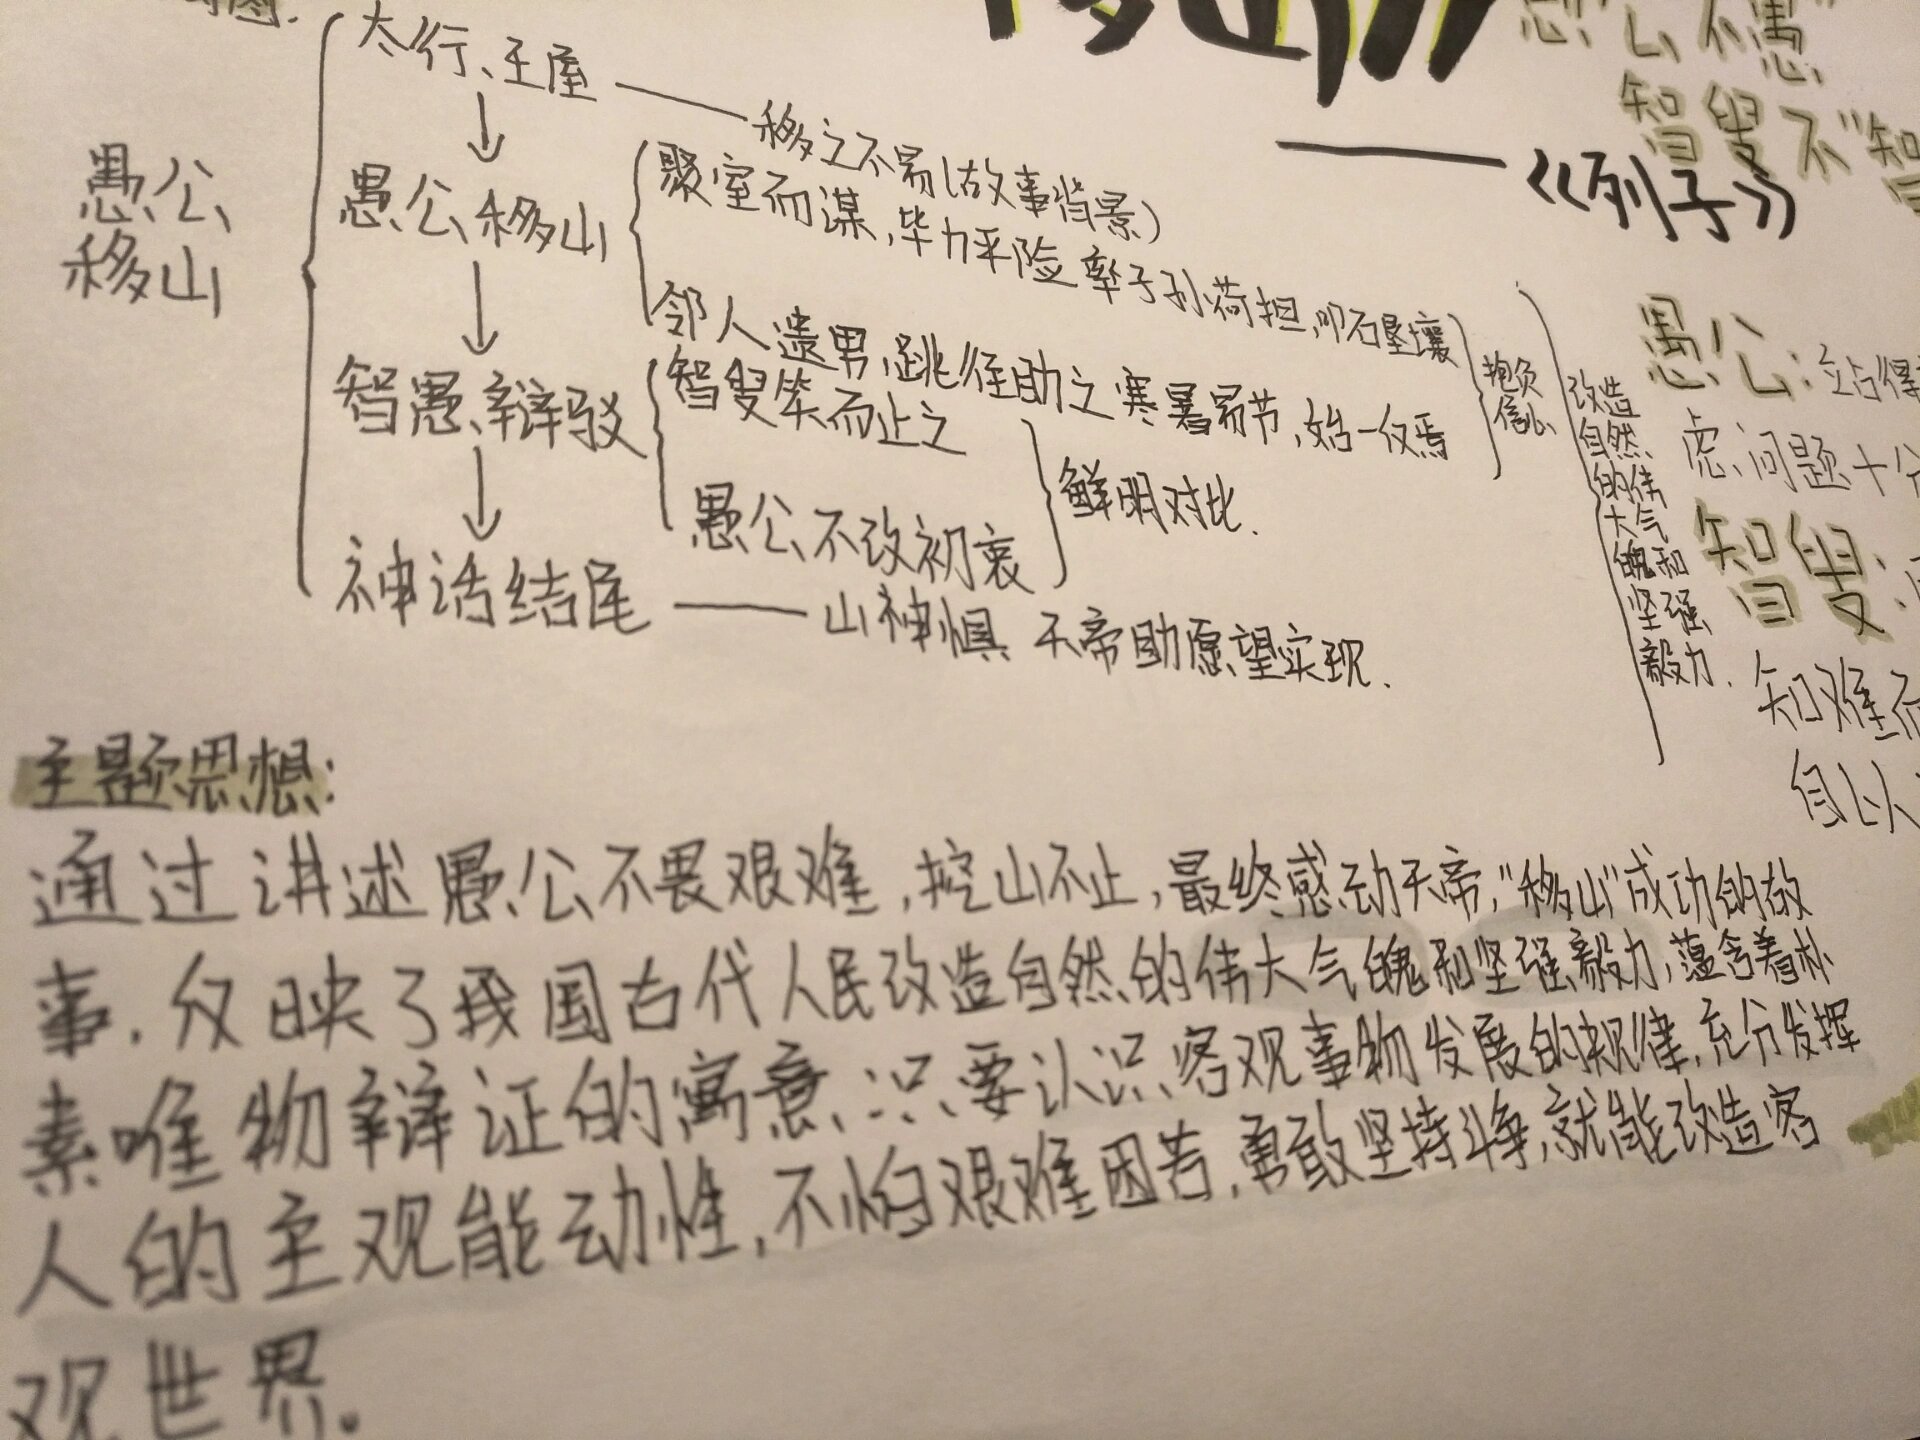 移山
——《列子》
愚公不"愚"
智叟不"智
愚公
移山
太行、王屋——移之不易(故事背景)
愚公移山
聚室而谋,毕力平险 率子孙荷担,叩石垦壤
邻人遗男,跳往助之 寒暑易节,始一反焉
抱负
信心
智愚辩驳
智叟笑而止之
愚公不改初衷
鲜明对比.
神话结尾——山神惧 天帝助愿望实现.
改造
自然
的伟
大气
魄和
坚强
毅力.
愚公:站得
虑问题十分
智叟:
知难而
自以
主题思想:
通过讲述愚公不畏艰难,挖山不止,最终感动天帝,"移山"成功的故
事,反映了我国古代人民改造自然的伟大气魄和坚强毅力,蕴含着朴
素唯物辩证的寓意,只要认识客观事物发展的规律,充分发挥
人的主观能动性,不怕艰难困苦,勇敢坚持斗争,就能改造客
观世界。